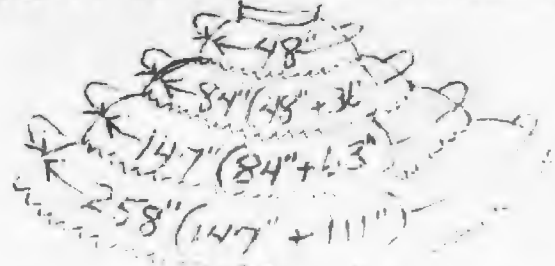 48"
84"(48" + 36"
147"(84"+63"
258"(147" + 111")